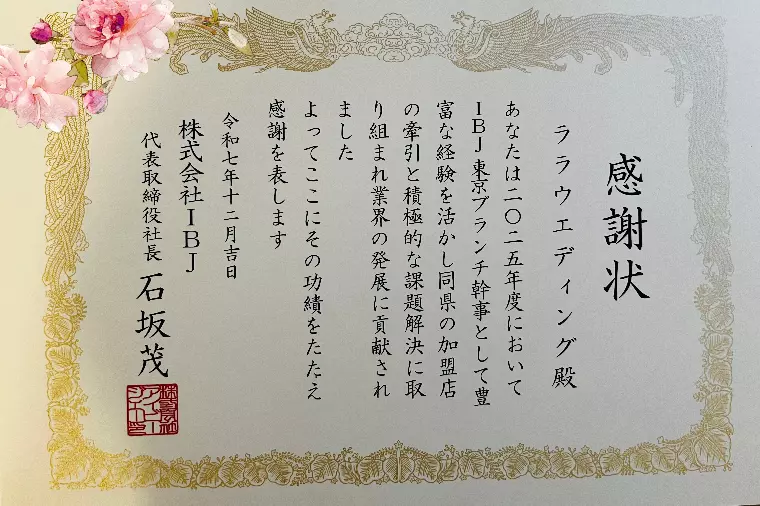 感謝状
ララウエディング殿
あなたは二〇二五年度において
IBJ東京ブランチ幹事として豊
富な経験を活かし同県の加盟店
の牽引と積極的な課題解決に取
り組まれ業界の発展に貢献され
ました
よってここにその功績をたたえ
感謝を表します
令和七年十二月吉日
株式会社IBJ
代表取締役社長 石坂茂